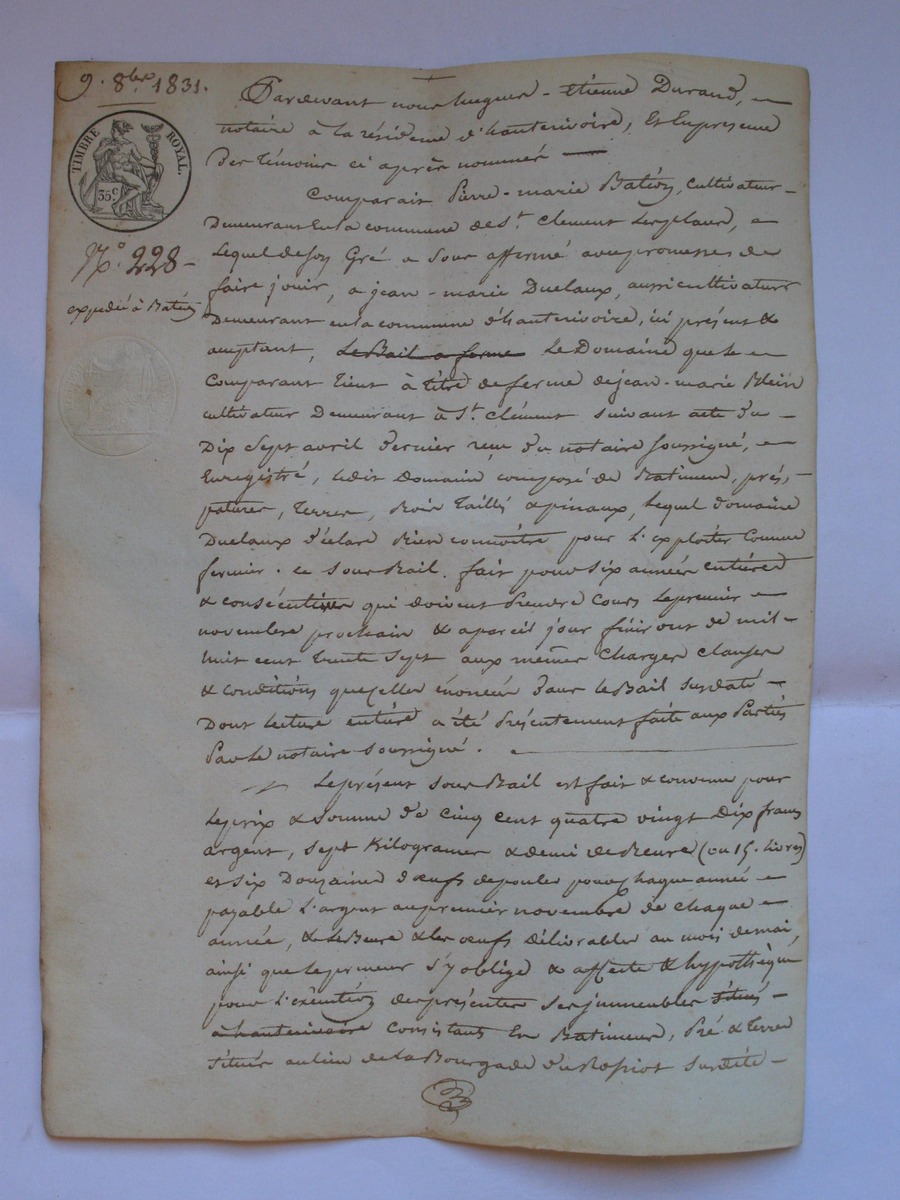 9. 8bre 1831.
TIMBRE ROYAL.
35c
No. 228
expédié à Batéon
Pardevant nous hugues - Etienne Durand,
notaire à la résidence d'hauterivoire, et En presence
Des Témoins ci après nommés
Comparait Pierre - marie Batéon, cultivateur
Demeurant En la commune de St. Clement Les places,
Lequel de son Gré a Sous affermé avec promesses de
faire jouir, a jean - marie Duclaux, aussi cultivateur
Demeurant en la commune d'hauterivoire, ici présent &
acceptant, Le Bail a ferme Le Domaine que le
Comparant Tient à titre de ferme de jean - marie Blein
cultivateur Demeurant à St. Clément suivant acte du
Dix Sept avril dernier recu du notaire soussigné,
Enregistré, ledit Domaine composé de Batiment, prés,
patures, Terres, Bois Taillis & pinaux, Lequel domaine
Duclaux déclare Bien connoître pour L'exploiter Comme
fermier. ce Sous Bail. fait pour Six années entières
& consécutives qui doivent Prendre Cours Le premier
novembre prochain & a pareil jour finiront de mil
huit cent trente Sept aux mêmes Charges Clauses
& conditions que celles énoncées dans le Bail Susdaté
Dont Lecture entière a été Présentement faite aux Parties
Par Le notaire soussigné.
Le présent Sous Bail est fait & convenu pour
Le prix & Somme de Cinq Cent quatre vingt Dix francs
argent, Sept Kilogrames & demi de Beure (ou 15. Livres)
et Six Douzaines d'œufs de poules pour chaque année
payable L'argent au premier novembre de chaque
année, & Le Beure & les œufs délivrables au mois de mai,
ainsi que le preneur s'y oblige & affecte & hypothèque
pour L'exécution des présentes Ses jmmeubles situés
a hauterivoire Consistants En Batiments, Pré & Terres
Situés au Lieu de La Bourgade du susdite